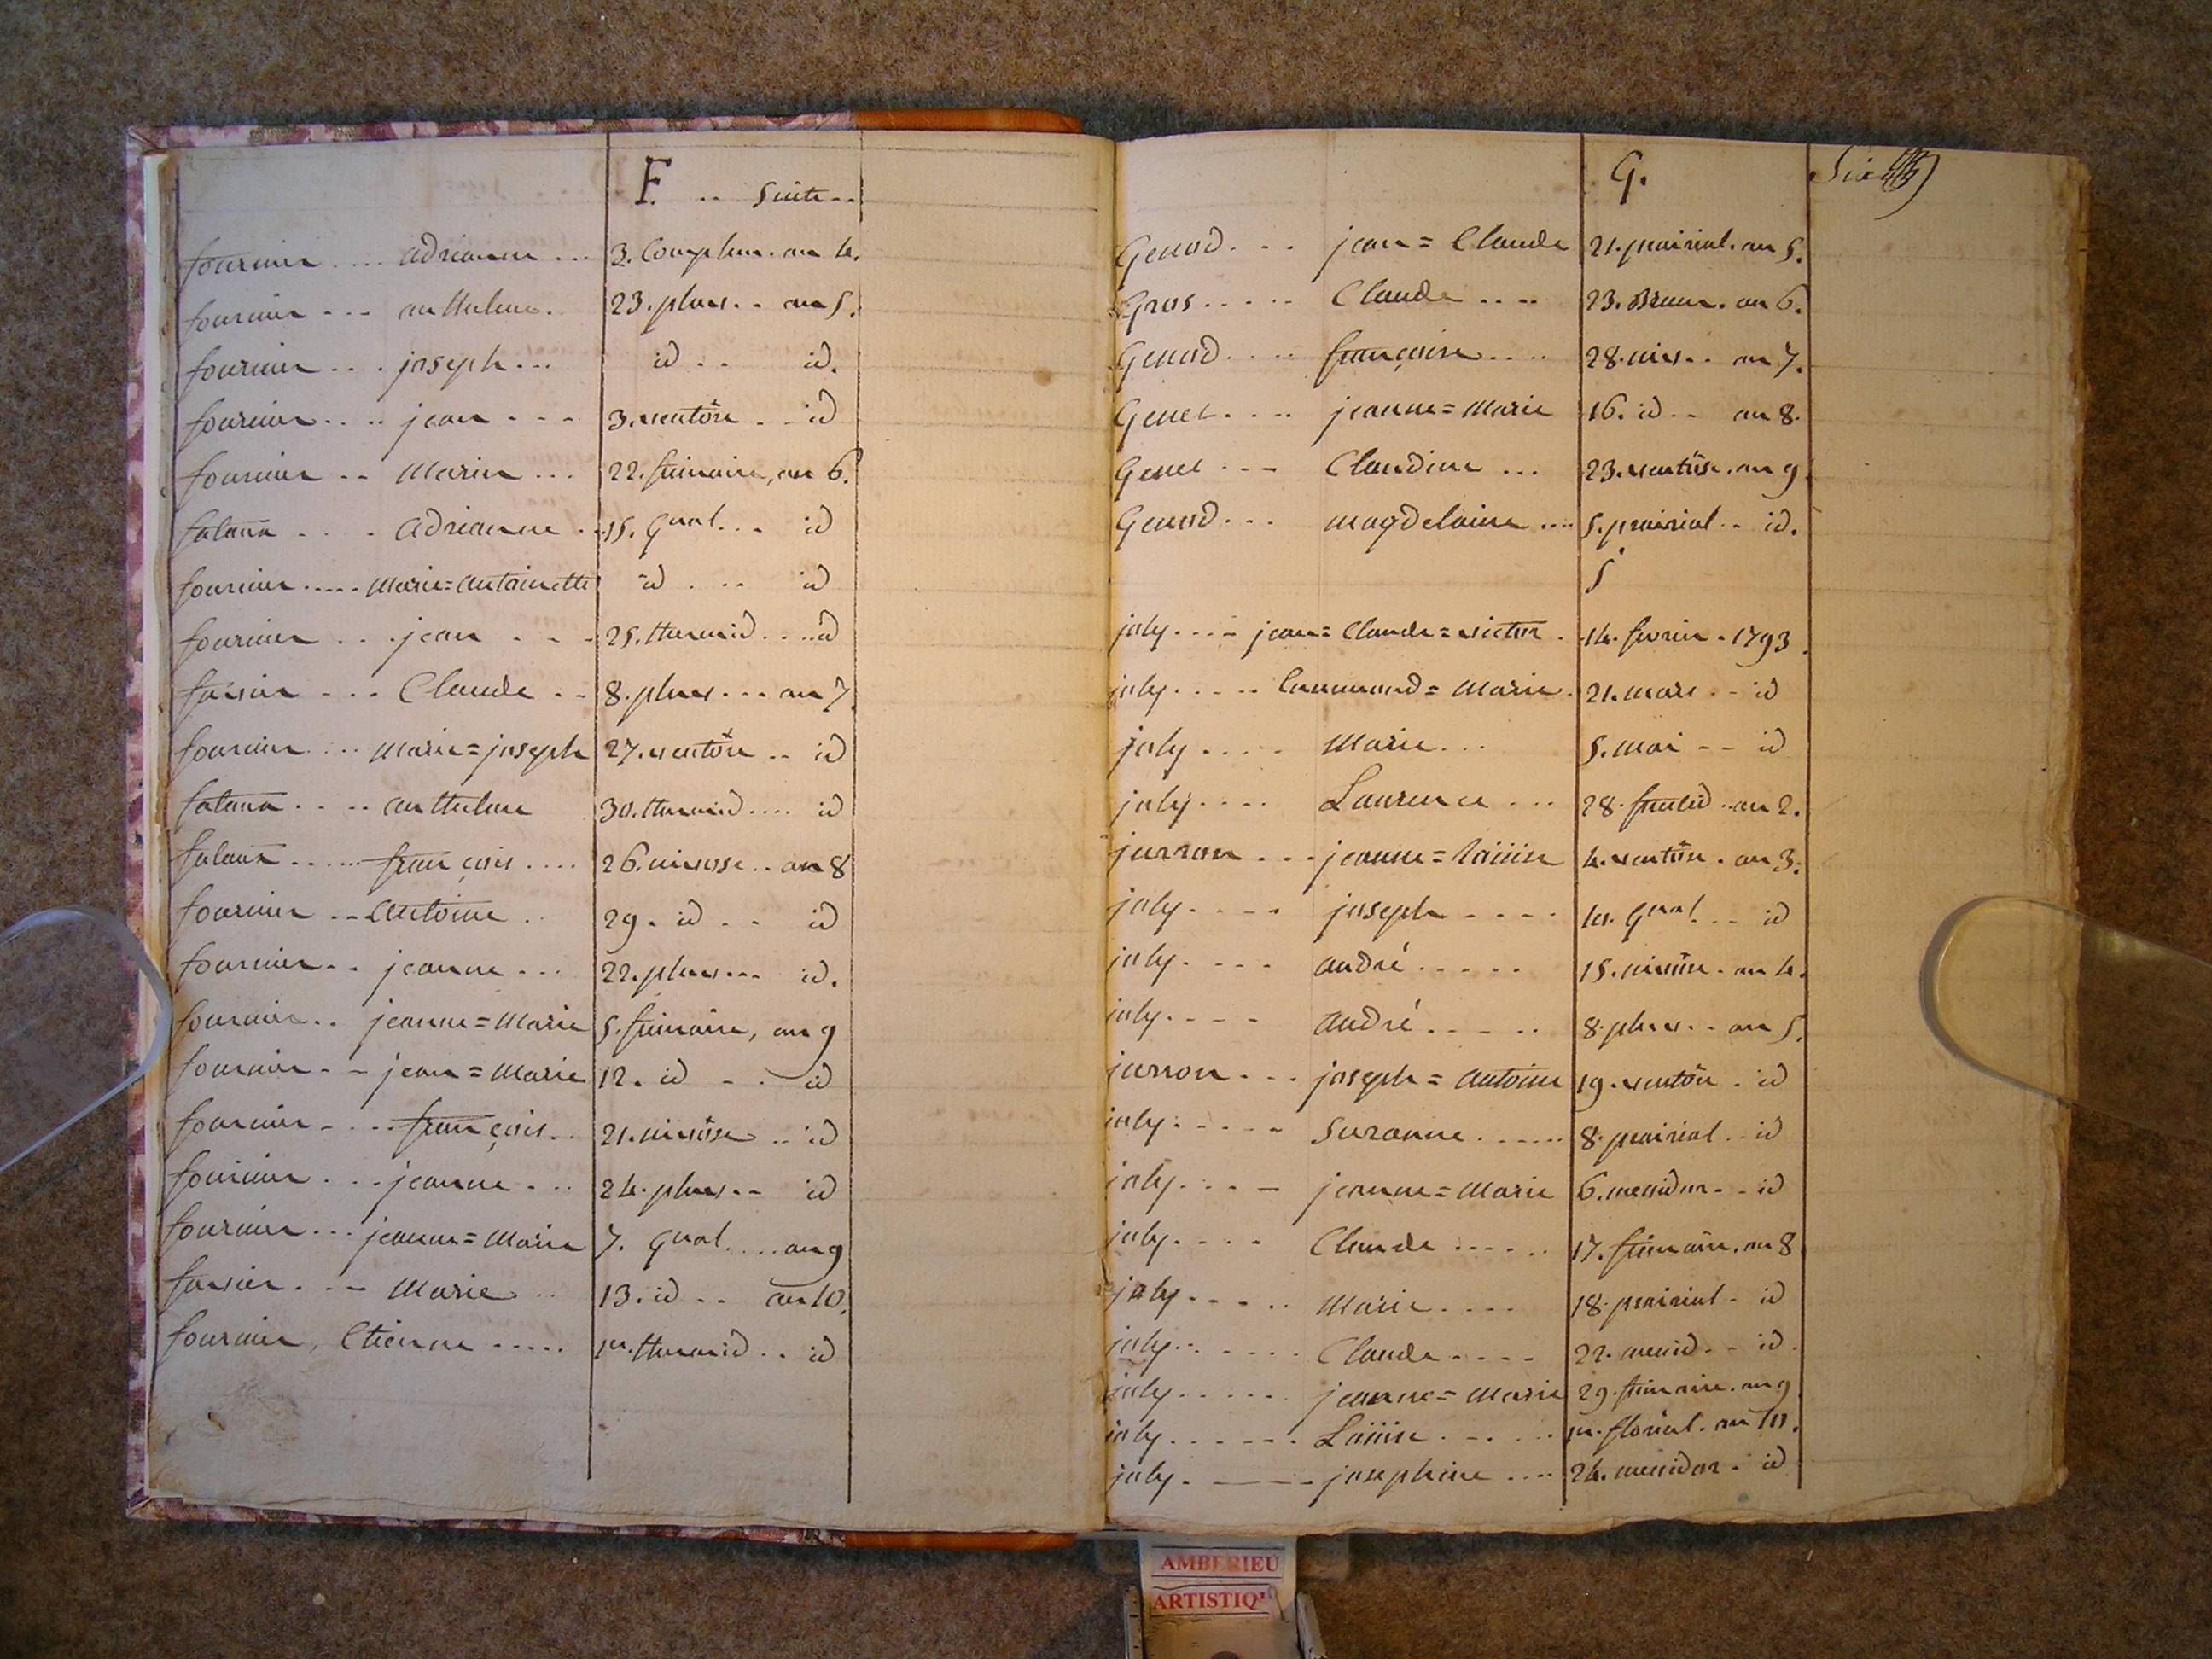 F. .. Suite ..
fournier .... adrianne ... 3. Complem. an 4.
fournier --- anthelme. 23. pluv. .. an 5.
fournier ... joseph ... id .. id.
fournier .... jean --- 3. ventôse .. id
fournier -- Marin ... 22. frimaire, an 6.
falana .... adrianne .. 15. gnal .. id
fournier ..... Marie=antoinette id ... id
fournier ... jean --- 25. thermid .... id
favier ... Claude -- 8. pluv ... an 7.
fournier ... Marie=joseph 27. ventôse .. id
falana .... anthelme 30. thermid .... id
falana ...... françois .... 26. nivose .. an 8
fournier -- antoine .. 29. id .. id
fournier .. jeanne ... 22. pluv ... id.
fournier .. jeanne=Marie 5. frimaire, an 9
fournier -- jean=Marie 12. id -. id
fournier ... françois .. 21. nivôse .. id
fournier ... jeanne ... 24. pluv .. id
fournier ... jeanne=Marie 7. gnal .... an 9
favier .-- Marie .. 13. id .. an 10.
fournier, Etienne ..... 1er. thermid .. id
G.
Six
Genod ... jean=Claude 21. prairial. an 5.
Gros ..... Claude .... 23. Brum. an 6.
Genod .... françoise .... 28. niv .. an 7.
Genet .... jeanne=Marie 16. id .. an 8.
Genet --- Claudine ... 23. ventôse. an 9
Genod ... magdelaine .... 5. prairial .. id.
J
joly .... jean=Claude=victor . 14. fevrier. 1793.
joly ..... =Marie. 21. mars .. id
joly .... Marie ... 5. mai -- id
joly .... Laurence ... 28. fructid .. an 2.
jarron ... jeanne=Loüise 4. ventôse. an 3.
joly .... joseph .... 10. gnal ... id
joly .... andré ..... 15. nivôse. an 4.
joly .... andré ..... 8. pluv .. an 5.
jarron ... joseph=antoine 19. ventôse. id
joly ..... Suzanne ...... 8. prairial .. id
joly .... jeanne=Marie 6. messidor .. id
joly .... Claude ...... 17. frimaire. an 8
joly ..... Marie .... 18. prairial. id
joly ...... Claude .... 22. messid .. id.
joly ..... jeanne=Marie 29. frimaire. an 9
joly ...... Loüise ..... 1er. floréal. an 10.
joly. ---- josephine .... 24. messidor. id
AMBERIEU
ARTISTIQ